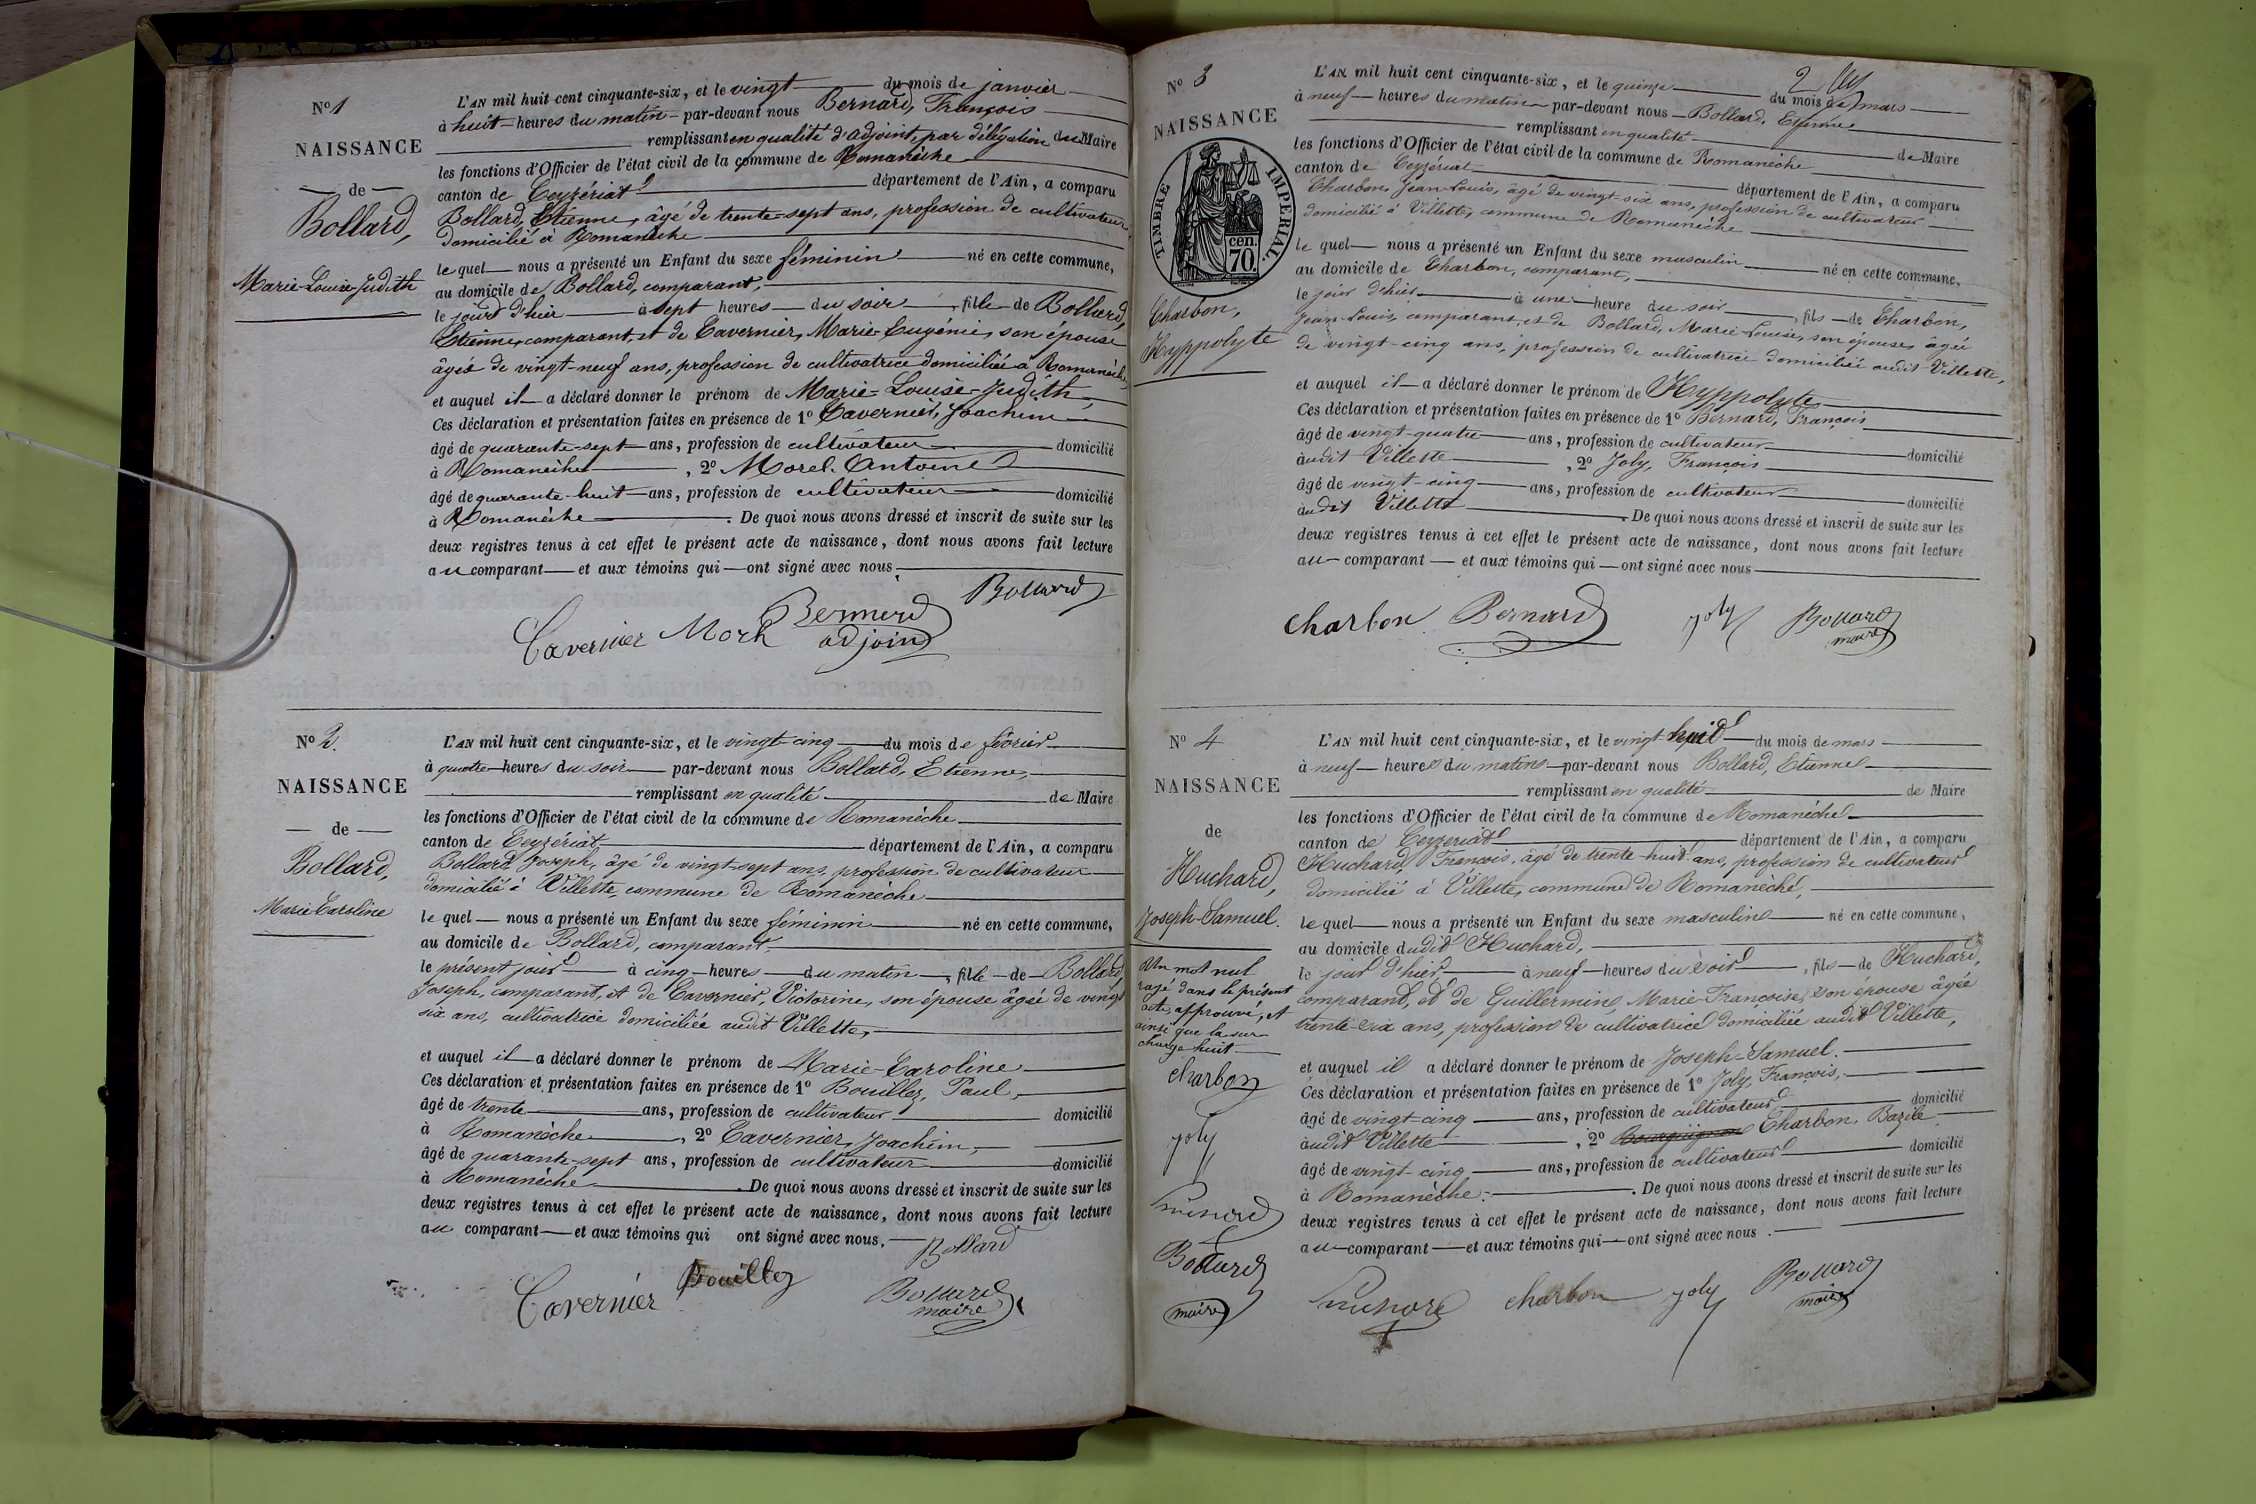 N° 1
NAISSANCE
de
Bollard,
Marie-Louise-Judith
L'AN mil huit cent cinquante-six, et le vingt du mois de janvier
à huit heures du matin par-devant nous Bernard, François
remplissant en qualité d'adjoint, par délégation du Maire
les fonctions d'Officier de l'état civil de la commune de Romanèche
canton de Ceyzériat département de l'Ain, a comparu
Bollard, Etienne, âgé de trente-sept ans, profession de cultivateur,
domicilié à Romanèche
le quel nous a présenté un Enfant du sexe féminin né en cette commune,
au domicile de Bollard, comparant,
le jour d'hier à sept heures du soir, fille de Bollard,
Etienne, comparant, et de Tavernier, Marie-Eugénie, son épouse
âgée de vingt-neuf ans, profession de cultivatrice domiciliée à Romanèche,
et auquel il a déclaré donner le prénom de Marie-Louise-Judith,
Ces déclaration et présentation faites en présence de 1° Tavernier, Joachim
âgé de quarante-sept ans, profession de cultivateur domicilié
à Romanèche, 2° Morel, Antoine
âgé de quarante-huit ans, profession de cultivateur domicilié
à Romanèche. De quoi nous avons dressé et inscrit de suite sur les
deux registres tenus à cet effet le présent acte de naissance, dont nous avons fait lecture
au comparant et aux témoins qui ont signé avec nous
Bollard
Bernard
Tavernier Morel adjoint
N° 2.
NAISSANCE
de
Bollard,
Marie Caroline
L'AN mil huit cent cinquante-six, et le vingt-cinq du mois de février
à quatre heures du soir par-devant nous Bollard, Etienne,
remplissant en qualité de Maire
les fonctions d'Officier de l'état civil de la commune de Romanèche
canton de Ceyzériat département de l'Ain, a comparu
Bollard Joseph, âgé de vingt-sept ans, profession de cultivateur
domicilié à Villette, commune de Romanèche
le quel nous a présenté un Enfant du sexe féminin né en cette commune,
au domicile de Bollard, comparant,
le présent jour à cinq heures du matin, fille de Bollard,
Joseph, comparant, et de Tavernier, Victorine, son épouse âgée de vingt
six ans, cultivatrice domiciliée audit Villette,
et auquel il a déclaré donner le prénom de Marie-Caroline
Ces déclaration et présentation faites en présence de 1° Bouillez, Paul,
âgé de trente ans, profession de cultivateur domicilié
à Romanèche, 2° Tavernier, Joachim,
âgé de quarante-sept ans, profession de cultivateur domicilié
à Romanèche. De quoi nous avons dressé et inscrit de suite sur les
deux registres tenus à cet effet le présent acte de naissance, dont nous avons fait lecture
au comparant et aux témoins qui ont signé avec nous.
Bollard
Bouillez
Tavernier Bollard
maire
2
N° 3
NAISSANCE
TIMBRE IMPERIAL.
cen.
70.
Charbon,
Hyppolyte
L'AN mil huit cent cinquante-six, et le quinze du mois de mars
à neuf heures du matin par-devant nous Bollard, Etienne
remplissant en qualité de Maire
les fonctions d'Officier de l'état civil de la commune de Romanèche
canton de Ceyzériat département de l'Ain, a comparu
Charbon, Jean-Louis, âgé de vingt-six ans, profession de cultivateur
domicilié à Villette, commune de Romanèche
le quel nous a présenté un Enfant du sexe masculin né en cette commune,
au domicile de Charbon, comparant,
le jour d'hier à une heure du soir, fils de Charbon,
Jean-Louis, comparant, et de Bollard, Marie-Louise, son épouse, âgée
de vingt-cinq ans, profession de cultivatrice domiciliée audit Villette,
et auquel il a déclaré donner le prénom de Hyppolyte
Ces déclaration et présentation faites en présence de 1° Bernard, François
âgé de vingt-quatre ans, profession de cultivateur domicilié
audit Villette, 2° Joly, François
âgé de vingt-cinq ans, profession de cultivateur domicilié
audit Villette. De quoi nous avons dressé et inscrit de suite sur les
deux registres tenus à cet effet le présent acte de naissance, dont nous avons fait lecture
au comparant et aux témoins qui ont signé avec nous
charbon Bernard joly Bollard
maire
N° 4
NAISSANCE
de
Huchard,
Joseph-Samuel.
Un mot nul
rayé dans le présent
acte, approuvé, et
ainsi que la sur
charge huit
charbon
joly
Bollard
maire
L'AN mil huit cent cinquante-six, et le vingt-huit du mois de mars
à neuf heures du matin par-devant nous Bollard, Etienne
remplissant en qualité de Maire
les fonctions d'Officier de l'état civil de la commune de Romanèche
canton de Ceyzeriat département de l'Ain, a comparu
Huchard, François, âgé de trente-huit ans, profession de cultivateur
domicilié à Villette, commune de Romanèche,
le quel nous a présenté un Enfant du sexe masculin né en cette commune,
au domicile dudit Huchard,
le jour d'hier à neuf heures du soir, fils de Huchard,
comparant, et de Guillermin, Marie-Françoise, son épouse âgée
trente-six ans, profession de cultivatrice domiciliée audit Villette,
et auquel il a déclaré donner le prénom de Joseph-Samuel.
Ces déclaration et présentation faites en présence de 1° Joly, François,
âgé de vingt-cinq ans, profession de cultivateur domicilié
audit Villette, 2° Charbon, Bazile
âgé de vingt-cinq ans, profession de cultivateur domicilié
à Romanèche. De quoi nous avons dressé et inscrit de suite sur les
deux registres tenus à cet effet le présent acte de naissance, dont nous avons fait lecture
au comparant et aux témoins qui ont signé avec nous.
charbon joly Bollard
maire